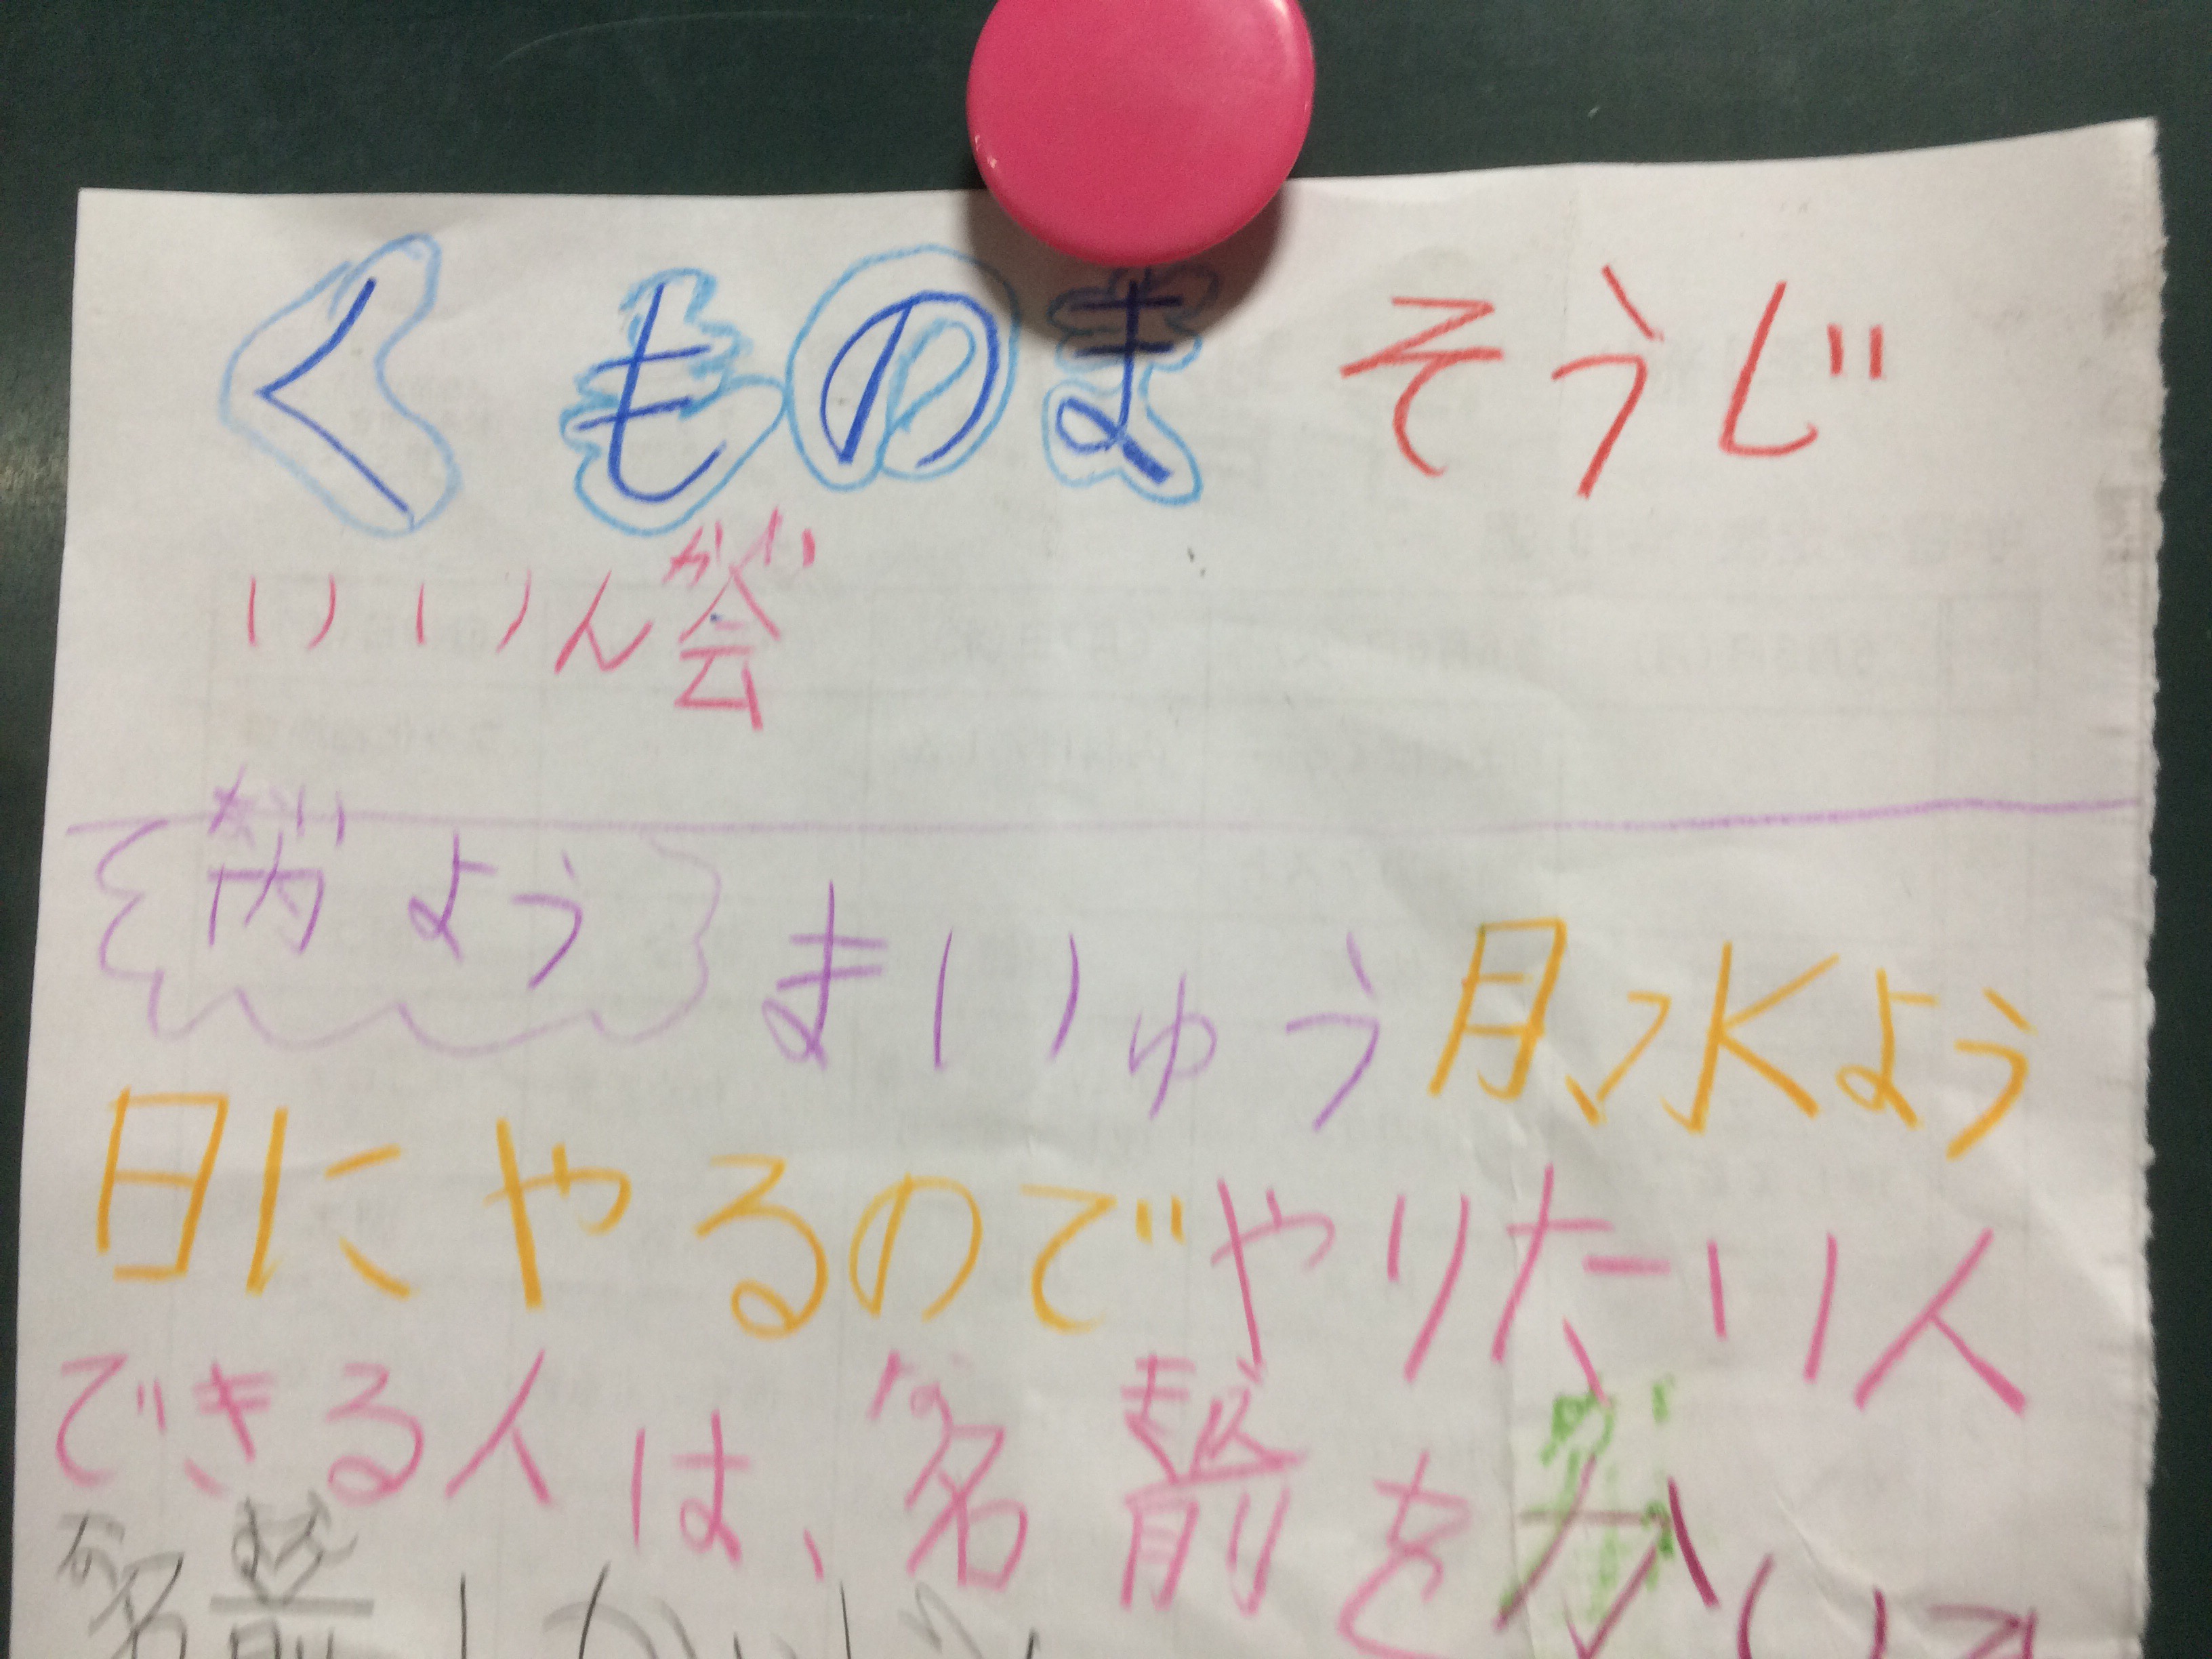 くものま そうじ
いいん会
内よう まいゅう月、水よう
日にやるのでやりたい人
できる人は、名前をかいて
名前